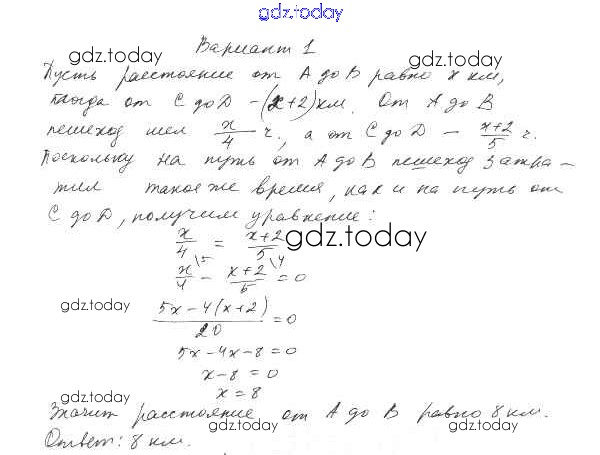 gdz.today
gdz.today
Вариант 1
gdz.today
Пусть расстояние от A до B равно x км,
тогда от C до D – (x+2) км. От A до B
пешеход шел x/4 ч, а от C до D – x+2/5 ч.
Поскольку на путь от A до B пешеход затра-
тил такое же время, как и на путь от
C до D, получим уравнение:
x/4 = x+2/5
gdz.today
x/4 \5 - x+2/5 \4 = 0
gdz.today
5x-4(x+2)/20 = 0
gdz.today
5x-4x-8=0
x-8=0
x=8
gdz.today
gdz.today
Значит расстояние от A до B равно 8 км.
Ответ: 8 км.
gdz.today
gdz.today